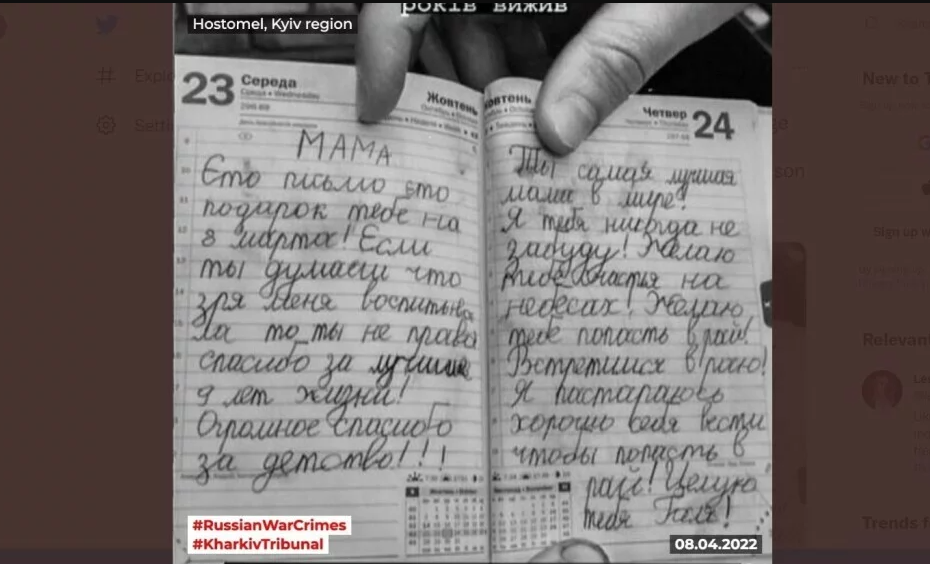 років вижив
Hostomel, Kyiv region
23 Середа
Жовтень
МАМА
Єто письмо єто
подарок тебе на
8 марта! Если
ты думаеш что
зря меня воспитыва
ла то ты не права
спасибо за лучшие
9 лет жизни!
Огромное спасибо
за детство!!!
Жовтень
Четвер 24
Ты самая лучшая
мама в мире!
Я тебя никогда не
забуду! Желаю
тебе счастья на
небесах! Желаю
тебе попасть в рай!
Встретимся в раю!
Я пастараюсь
хорошо себя вести
чтобы попасть в
рай! Целую
тебя Галя!
#RussianWarCrimes
#KharkivTribunal
08.04.2022
# Explo
Setti
New to T
Sign up w
Relevan
Trends f